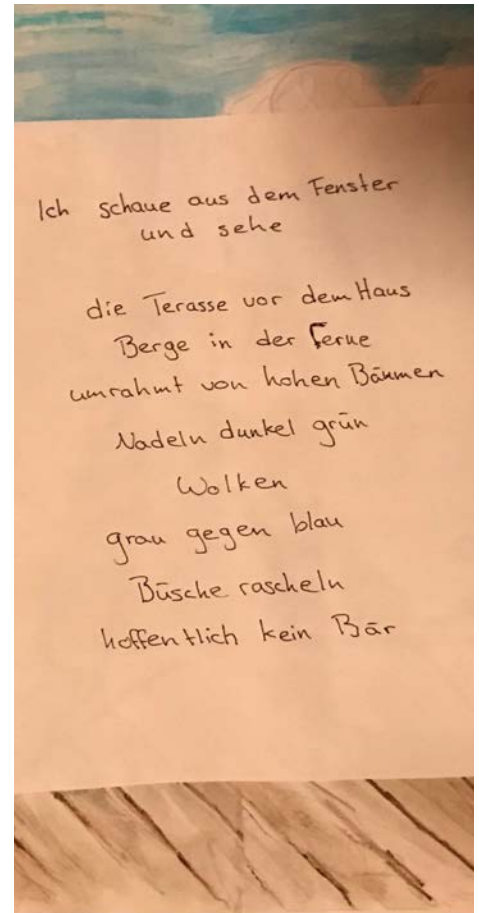 Ich schaue aus dem Fenster
und sehe
die Terasse vor dem Haus
Berge in der Ferne
umrahmt von hohen Bäumen
Nadeln dunkel grün
Wolken
grau gegen blau
Büsche rascheln
hoffentlich kein Bär